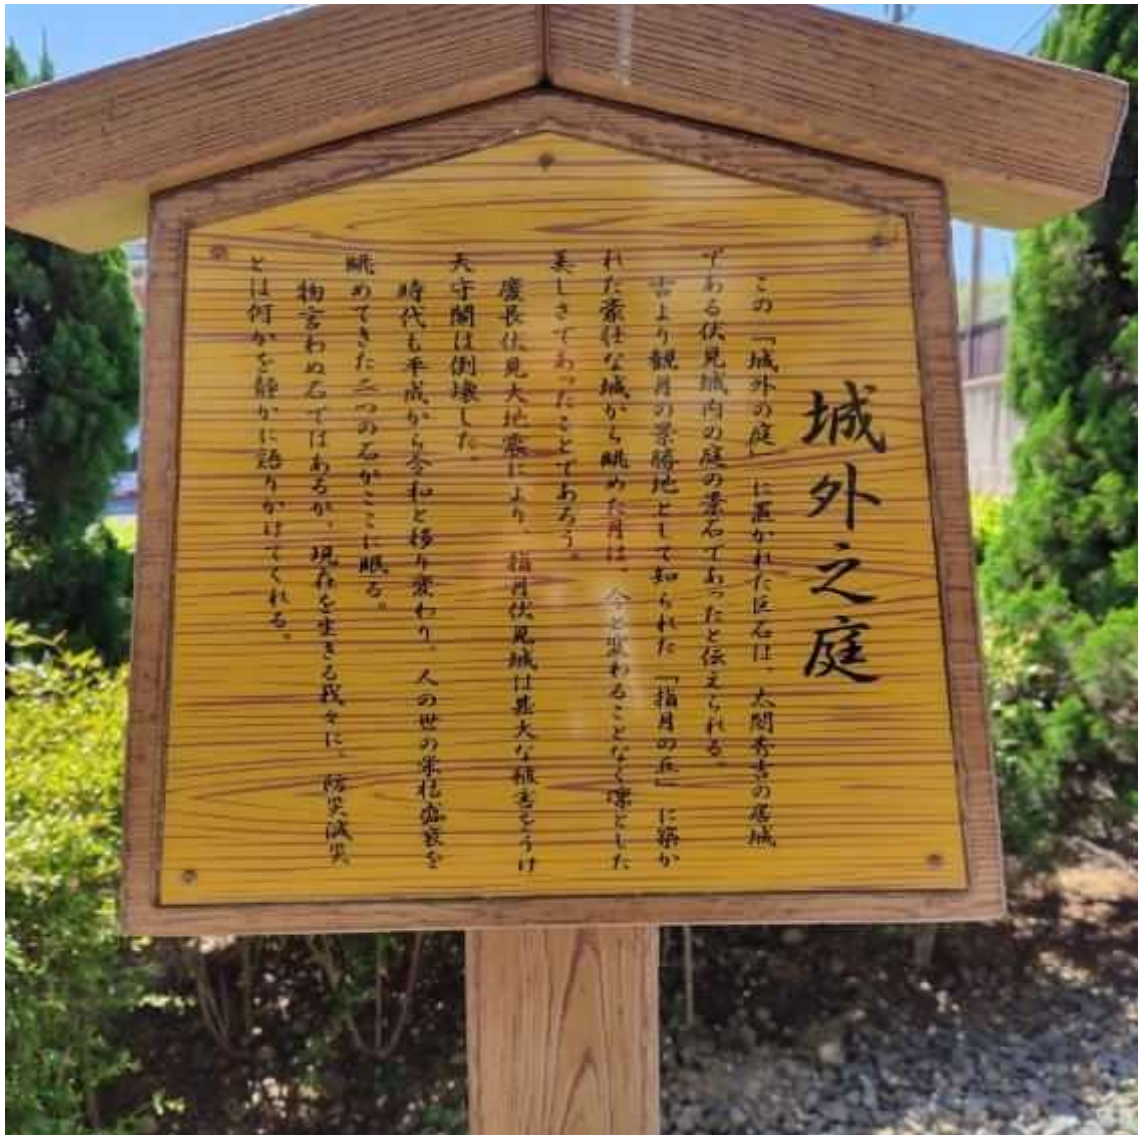 城外之庭
この「城外の庭」に置かれた巨石は、太閤秀吉の居城
である伏見城内の庭の景石であったと伝えられる。
古より観月の景勝地として知られた「指月の丘」に築か
れた豪壮な城から眺めた月は、今と変わることなく凛とした
美しさであったことであろう。
慶長伏見大地震により、指月伏見城は甚大な被害をうけ
天守閣は倒壊した。
時代も平成から令和と移り変わり、人の世の栄枯盛衰を
眺めてきた二つの石がここに眠る。
物言わぬ石ではあるが、現在を生きる我々に、防災減災
とは何かを静かに語りかけてくれる。